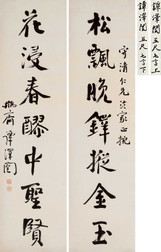 譚澤闓 五尺 七言上
譚澤闓 五尺 七言下
松飄晚鐸摐金玉
守清仁兄法家正
花浸春醪中聖賢
瓶齋譚澤闓